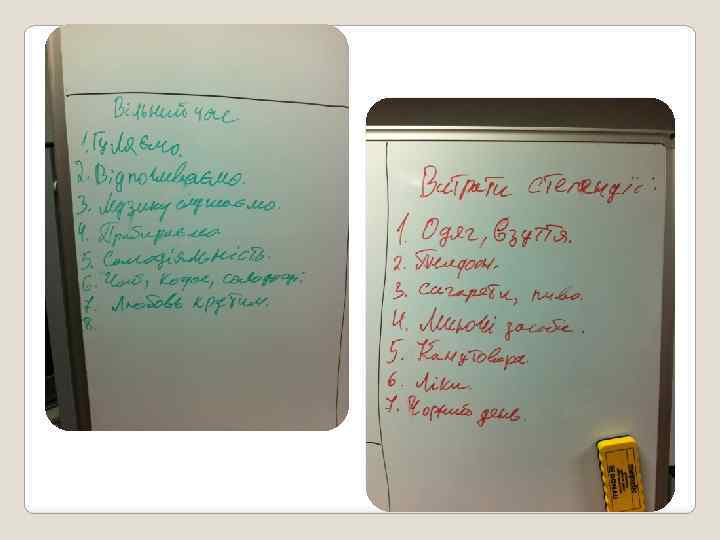 Вільний час
1. Гуляємо.
2. Відпочиваємо.
3. Музику слушаємо.
4. Прибираємо
5. Самодіяльність.
6. Чай, кофе, солодощі.
7. Любовь крутим.
8.
Витрати степендії:
1. Одяг, взуття.
2. Телефон.
3. Сигарети, пиво.
4. Миючі засоби.
5. Канцтовари.
6. Ліки.
7. Чорний день.
DONAU